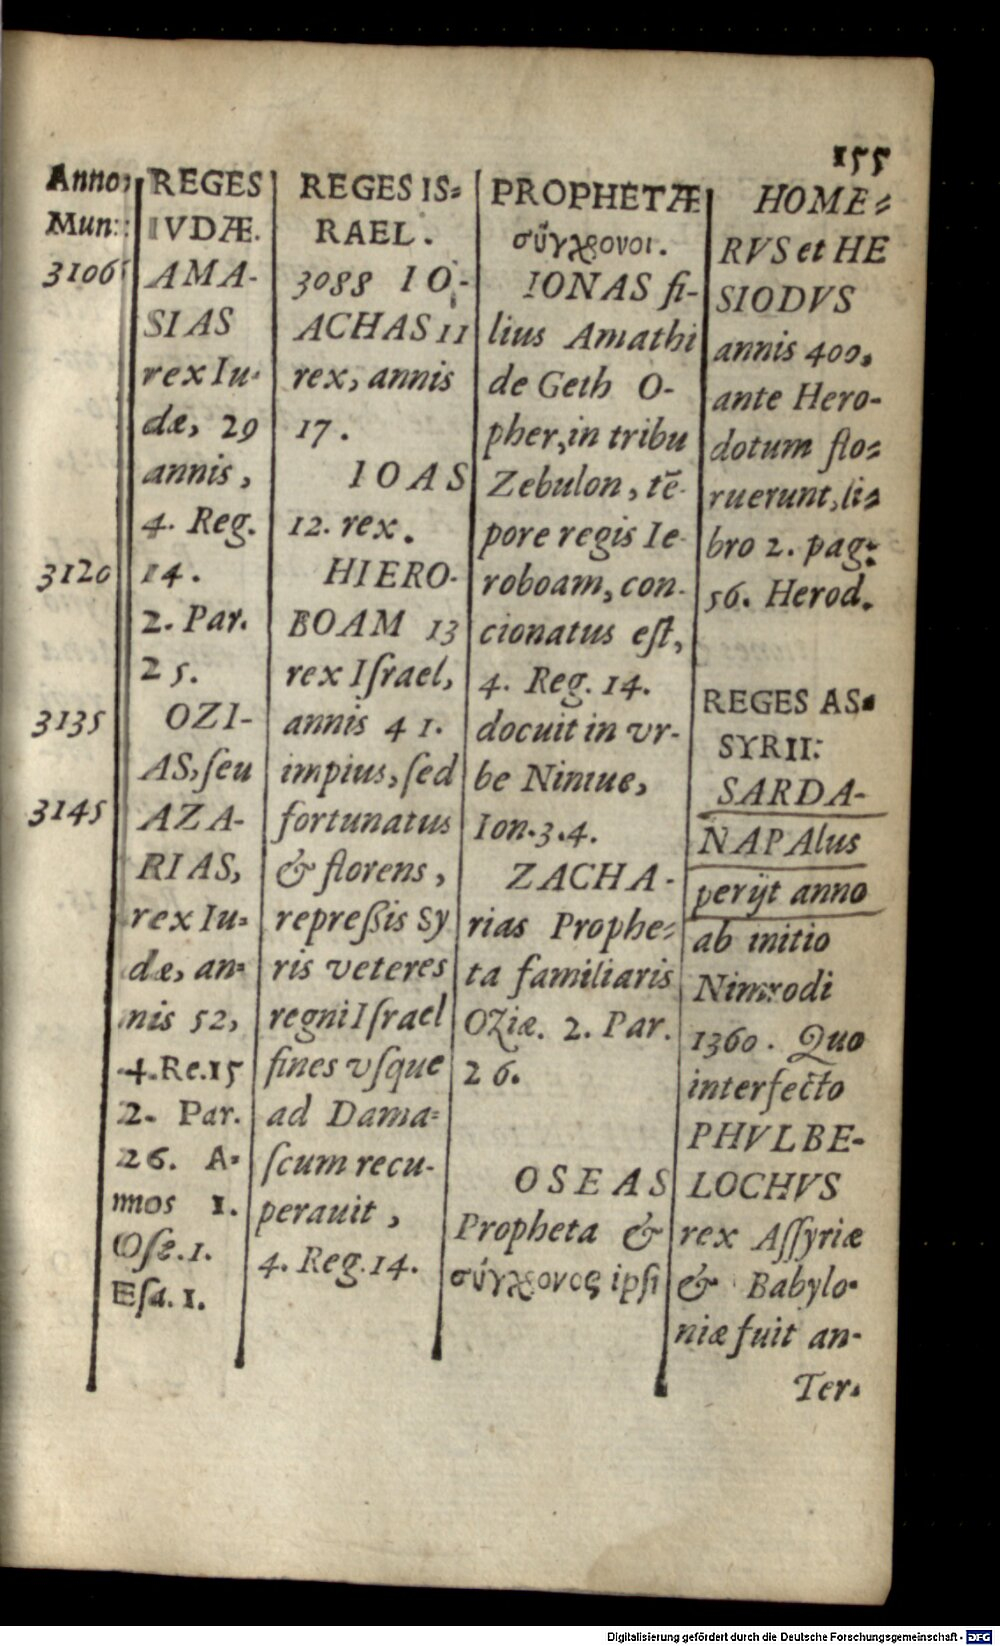 155
Anno
Mun:
3106
3120
3135
3145
REGES
IVDÆ.
AMA-
SIAS
rex Iu-
dæ, 29
annis,
4. Reg.
14.
2. Par.
25.
OZI-
AS, ſeu
AZA-
RIAS,
rex Iu=
dæ, an=
nis 52,
4. Re. 15
2. Par.
26. A=
mos 1.
Oſe. 1.
Eſa. 1.
REGES IS=
RAEL.
3088 IO-
ACHAS 11
rex, annis
17.
IOAS
12. rex.
HIERO-
BOAM 13
rex Iſrael,
annis 41.
impius, ſed
fortunatus
& florens,
repreßis Sy
ris veteres
regni Iſrael
fines vſque
ad Dama=
ſcum recu-
perauit,
4. Reg. 14.
PROPHETÆ
σύγχρονοι.
IONAS fi-
lius Amathi
de Geth O-
pher, in tribu
Zebulon, tē-
pore regis Ie-
roboam, con-
cionatus eſt,
4. Reg. 14.
docuit in vr-
be Niniue,
Ion. 3. 4.
ZACHA-
rias Prophe=
ta familiaris
Oziæ. 2. Par.
26.
OSEAS
Propheta &
σύγχρονος ipſi
HOME=
RVS et HE
SIODVS
annis 400,
ante Hero-
dotum flo=
ruerunt, li=
bro 2. pag:
56. Herod.
REGES AS-
SYRII:
SARDA-
NAPAlus
perijt anno
ab initio
Nimrodi
1360. Quo
interfecto
PHVLBE-
LOCHVS
rex Aſſyriæ
& Babylo-
niæ fuit an-
Ter-
Digitalisierung gefördert durch die Deutsche Forschungsgemeinschaft - DFG